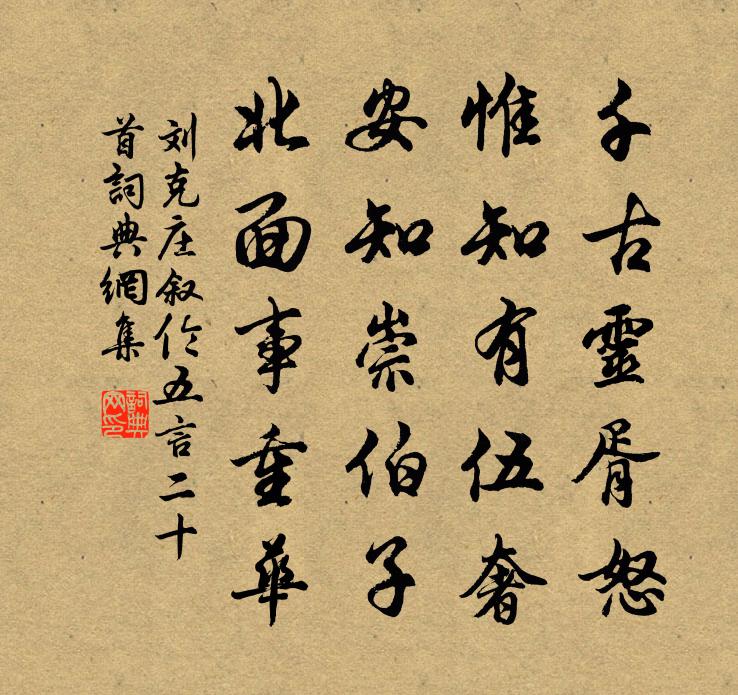 千古靈胥怒
惟知有伍奢
安知崇伯子
北面事重華
刘克庄叙伦五言二十
首詞典網集
詞典网印